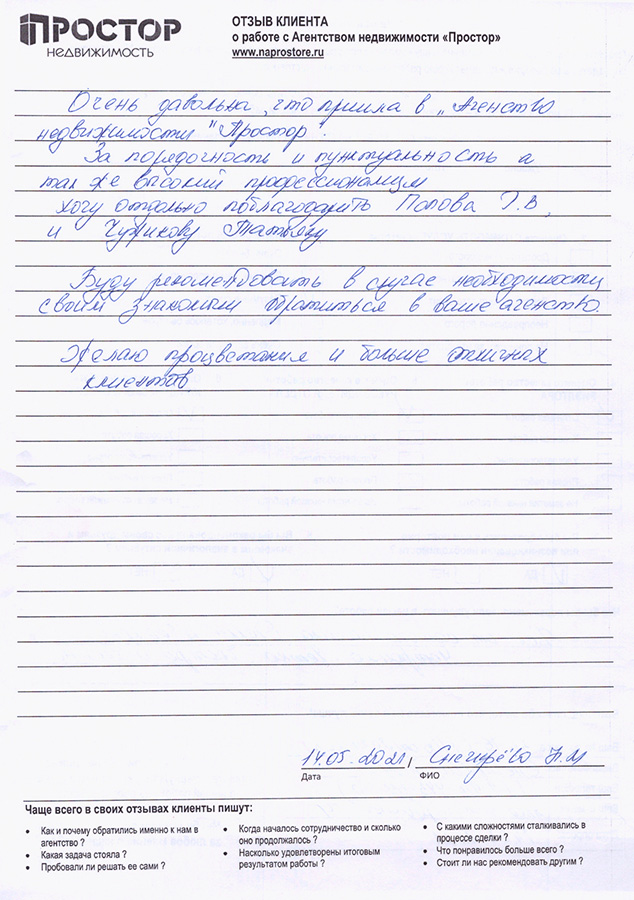 ПРОСТОР
НЕДВИЖИМОСТЬ
ОТЗЫВ КЛИЕНТА
о работе с Агентством недвижимости «Простор»
www.naprostore.ru
Очень давольна, что пришла в „Агенство
недвижимости "Простор".
За порядочность и пунктуальность а
так же высокий профессионализм
хочу отдельно поблагодарить Попова Г.В,
и Чурикову Татьяну
Буду рекомендовать в случае необходимости
своим знакомым обратиться в ваше агенство.
Желаю процветания и больше отличных
клиентов
14.05.2021, Снегирёва Н.И
Дата ФИО
Чаще всего в своих отзывах клиенты пишут:
• Как и почему обратились именно к нам в
агентство ?
• Какая задача стояла ?
• Пробовали ли решать ее сами ?
• Когда началось сотрудничество и сколько
оно продолжалось ?
• Насколько удовлетворены итоговым
результатом работы ?
• С какими сложностями сталкивались в
процессе сделки ?
• Что понравилось больше всего ?
• Стоит ли нас рекомендовать другим ?